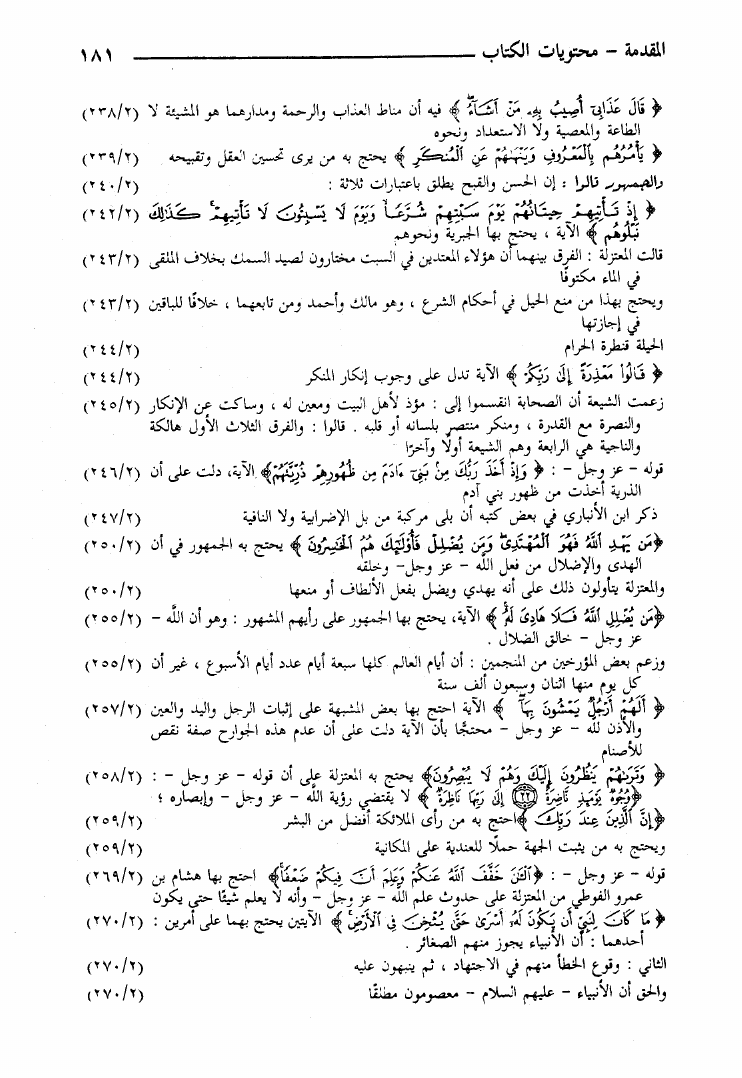 المقدمة - محتويات الكتاب ١٨١
﴿ قَالَ عَذَابِىٓ أُصِيبُ بِهِۦ مَنْ أَشَآءُ ﴾ فيه أن مناط العذاب والرحمة ومدارهما هو المشيئة لا (٢٣٨/٢)
الطاعة والمعصية ولا الاستعداد ونحوه
﴿ يَأْمُرُهُم بِٱلْمَعْرُوفِ وَيَنْهَىٰهُمْ عَنِ ٱلْمُنكَرِ ﴾ يحتج به من يرى تحسين العقل وتقبيحه (٢٣٩/٢)
والجمهور قالوا : إن الحسن والقبح يطلق باعتبارات ثلاثة : (٢٤٠/٢)
﴿ إِذْ تَأْتِيهِمْ حِيتَانُهُمْ يَوْمَ سَبْتِهِمْ شُرَّعًا وَيَوْمَ لَا يَسْبِتُونَ لَا تَأْتِيهِمْ كَذَٰلِكَ (٢٤٢/٢)
نَبْلُوهُم ﴾ الآية ، يحتج بها الجبرية ونحوهم
قالت المعتزلة : الفرق بينهما أن هؤلاء المعتدين في السبت مختارون لصيد السمك بخلاف الملقى (٢٤٣/٢)
في الماء مكتوفًا
ويحتج بهذا من منع الحيل في أحكام الشرع ، وهو مالك وأحمد ومن تابعهما ، خلافًا للباقين (٢٤٣/٢)
في إجازتها
الحيلة قنطرة الحرام (٢٤٤/٢)
﴿ قَالُوا۟ مَعْذِرَةً إِلَىٰ رَبِّكُمْ ﴾ الآية تدل على وجوب إنكار المنكر (٢٤٤/٢)
زعمت الشيعة أن الصحابة انقسموا إلى : مؤذ لأهل البيت ومعين له ، وساكت عن الإنكار (٢٤٥/٢)
والنصرة مع القدرة ، ومنكر منتصر بلسانه أو قلبه . قالوا : والفرق الثلاث الأول هالكة
والناجية هي الرابعة وهم الشيعة أولًا وآخرًا
قوله - عز وجل - : ﴿ وَإِذْ أَخَذَ رَبُّكَ مِنۢ بَنِىٓ ءَادَمَ مِن ظُهُورِهِمْ ذُرِّيَّتَهُمْ﴾ الآية، دلت على أن (٢٤٦/٢)
الذرية أخذت من ظهور بني آدم
ذكر ابن الأنباري في بعض كتبه أن بلى مركبة من بل الإضرابية ولا النافية (٢٤٧/٢)
﴿مَن يَهْدِ ٱللَّهُ فَهُوَ ٱلْمُهْتَدِى وَمَن يُضْلِلْ فَأُو۟لَٰٓئِكَ هُمُ ٱلْخَٰسِرُونَ ﴾ يحتج به الجمهور في أن (٢٥٠/٢)
الهدى والإضلال من فعل الله - عز وجل- وخلقه
والمعتزلة يتأولون ذلك على أنه يهدي ويضل بفعل الألطاف أو منعها (٢٥٠/٢)
﴿مَن يُضْلِلِ ٱللَّهُ فَلَا هَادِىَ لَهُۥ ﴾ الآية، يحتج بها الجمهور على رأيهم المشهور : وهو أن اللَّه - (٢٥٥/٢)
عز وجل - خالق الضلال .
وزعم بعض المؤرخين من المنجمين : أن أيام العالم كلها سبعة أيام عدد أيام الأسبوع ، غير أن (٢٥٥/٢)
كل يوم منها اثنان وسبعون ألف سنة
﴿ أَلَهُمْ أَرْجُلٌ يَمْشُونَ بِهَآ ﴾ الآية احتج بها بعض المشبهة على إثبات الرجل واليد والعين (٢٥٧/٢)
والأذن لله - عز وجل - محتجًّا بأن الآية دلت على أن عدم هذه الجوارح صفة نقص
للأصنام
﴿ وَتَرَىٰهُمْ يَنظُرُونَ إِلَيْكَ وَهُمْ لَا يُبْصِرُونَ﴾ يحتج به المعتزلة على أن قوله - عز وجل - : (٢٥٨/٢)
﴿وُجُوهٌ يَوْمَئِذٍ نَّاضِرَةٌ ۝٢٢ إِلَىٰ رَبِّهَا نَاظِرَةٌ ﴾ لا يقتضي رؤية الله - عز وجل - وإبصاره ؛
﴿إِنَّ ٱلَّذِينَ عِندَ رَبِّكَ ﴾احتج به من رأى الملائكة أفضل من البشر (٢٥٩/٢)
ويحتج به من يثبت الجهة حملًا للعندية على المكانية (٢٥٩/٢)
قوله - عز وجل - : ﴿ٱلْـَٰٔنَ خَفَّفَ ٱللَّهُ عَنكُمْ وَعَلِمَ أَنَّ فِيكُمْ ضَعْفًا﴾ احتج بها هشام بن (٢٦٩/٢)
عمرو الفوطي من المعتزلة على حدوث علم الله - عز وجل - وأنه لا يعلم شيئًا حتى يكون
﴿ مَا كَانَ لِنَبِىٍّ أَن يَكُونَ لَهُۥٓ أَسْرَىٰ حَتَّىٰ يُثْخِنَ فِى ٱلْأَرْضِ ﴾ الآيتين يحتج بهما على أمرين : (٢٧٠/٢)
أحدهما : أن الأنبياء يجوز منهم الصغائر .
الثاني : وقوع الخطأ منهم في الاجتهاد ، ثم ينبهون عليه (٢٧٠/٢)
والحق أن الأنبياء - عليهم السلام - معصومون مطلقًا (٢٧٠/٢)